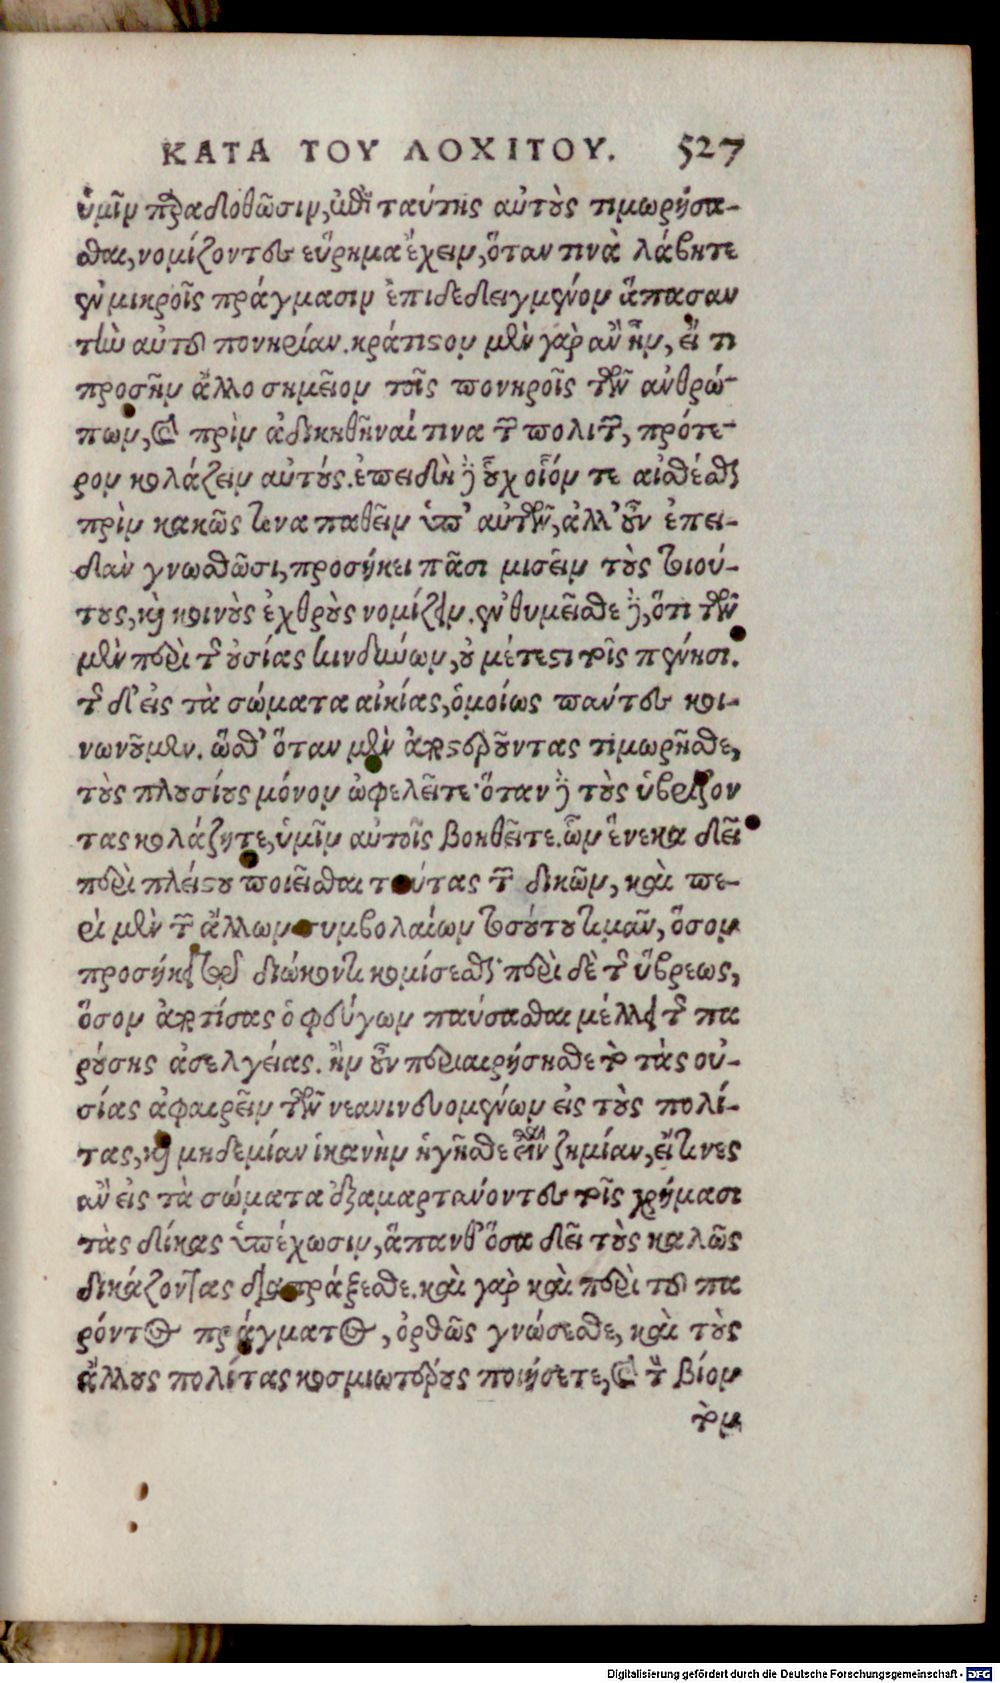 ΚΑΤΑ ΤΟΥ ΛΟΧΙΤΟΥ. 527
ὑμῖν παραδοθῶσιν, ὑπὲρ ταύτης αὐτοὺς τιμωρήσα-
σθαι, νομίζοντες εὕρημα ἔχειν, ὅταν τινὰ λάβητε
ἐν μικροῖς πράγμασιν ἐπιδεδειγμένον ἅπασαν
τὴν αὐτοῦ πονηρίαν. κράτιστον μὲν γὰρ ἂν ἦν, εἴ τι
προσῆν ἄλλο σημεῖον τοῖς πονηροῖς τῶν ἀνθρώ-
πων, καὶ πρὶν ἀδικηθῆναί τινα τῶν πολιτῶν, πρότε-
ρον κολάζειν αὐτούς. ἐπειδὴ δ' οὐχ οἷόν τε αἰσθέσθαι
πρὶν κακῶς τινα παθεῖν ὑπ' αὐτῶν, ἀλλ' οὖν ἐπει-
δὰν γνωσθῶσι, προσήκει πᾶσι μισεῖν τοὺς τοιού-
τους, καὶ κοινοὺς ἐχθροὺς νομίζειν. ἐνθυμεῖσθε δὲ, ὅτι τῶν
μὲν περὶ τῆς οὐσίας κινδύνων, οὐ μέτεστι τοῖς πένησι.
τῆς δ' εἰς τὰ σώματα αἰκίας, ὁμοίως πάντες κοι-
νωνοῦμεν. ὥσθ' ὅταν μὲν ἀποστεροῦντας τιμωρῆσθε,
τοὺς πλουσίους μόνον ὠφελεῖτε· ὅταν δὲ τοὺς ὑβρίζον
τας κολάζητε, ὑμῖν αὐτοῖς βοηθεῖτε. ὧν ἕνεκα δεῖ
περὶ πλείστου ποιεῖσθαι τούτας τῶν δικῶν, καὶ πε-
ρὶ μὲν τῶν ἄλλων συμβολαίων τοσούτου τιμᾶν, ὅσον
προσήκει τῷ διώκοντι κομίσεσθαι· περὶ δὲ τῆς ὕβρεως,
ὅσον ἀποτίσας ὁ φεύγων παύσασθαι μέλλει τῆς πα
ρούσης ἀσελγείας. ἢν οὖν περιαιρήσησθε τὸ τὰς οὐ-
σίας ἀφαιρεῖν τῶν νεανιευομένων εἰς τοὺς πολί-
τας, καὶ μηδεμίαν ἱκανὴν ἡγῆσθε εἶναι ζημίαν, εἵτινες
ἂν εἰς τὰ σώματα ἐξαμαρτάνοντες τοῖς χρήμασι
τὰς δίκας ὑπέχωσιν, ἅπανθ' ὅσα δεῖ τοὺς καλῶς
δικάζοντας διαπράξεσθε. καὶ γὰρ καὶ περὶ τοῦ πα
ρόντος πράγματος, ὀρθῶς γνώσεσθε, καὶ τοὺς
ἄλλους πολίτας κοσμιωτέρους ποιήσετε, καὶ τὸν βίον
τὸν
Digitalisierung gefördert durch die Deutsche Forschungsgemeinschaft - DFG